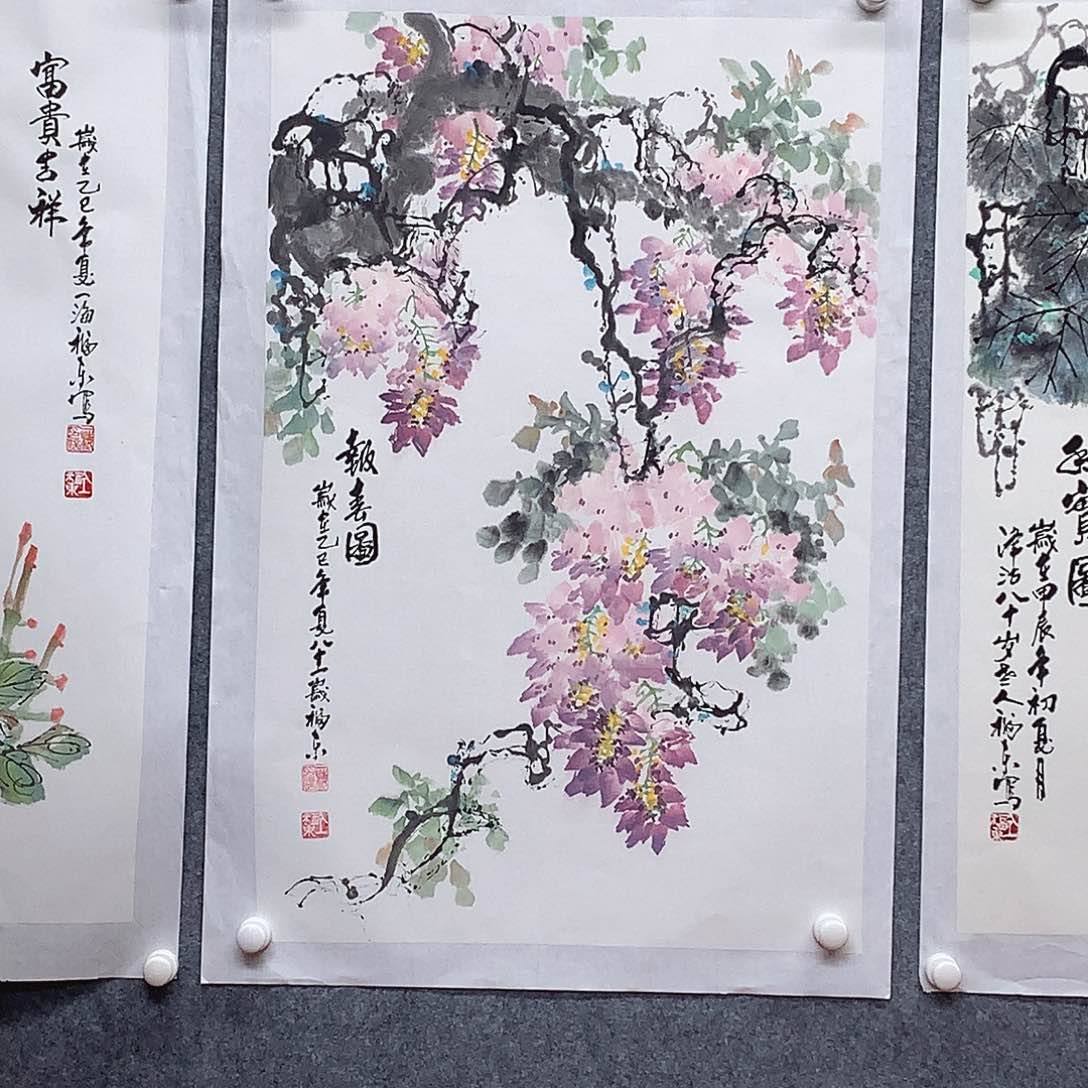 富貴吉祥
歲在乙巳年夏一海福東寫
報春圖
歲在乙巳年夏八十一歲福東
實圖
歲在甲辰年初夏月
津沽八十岁老人福東寫